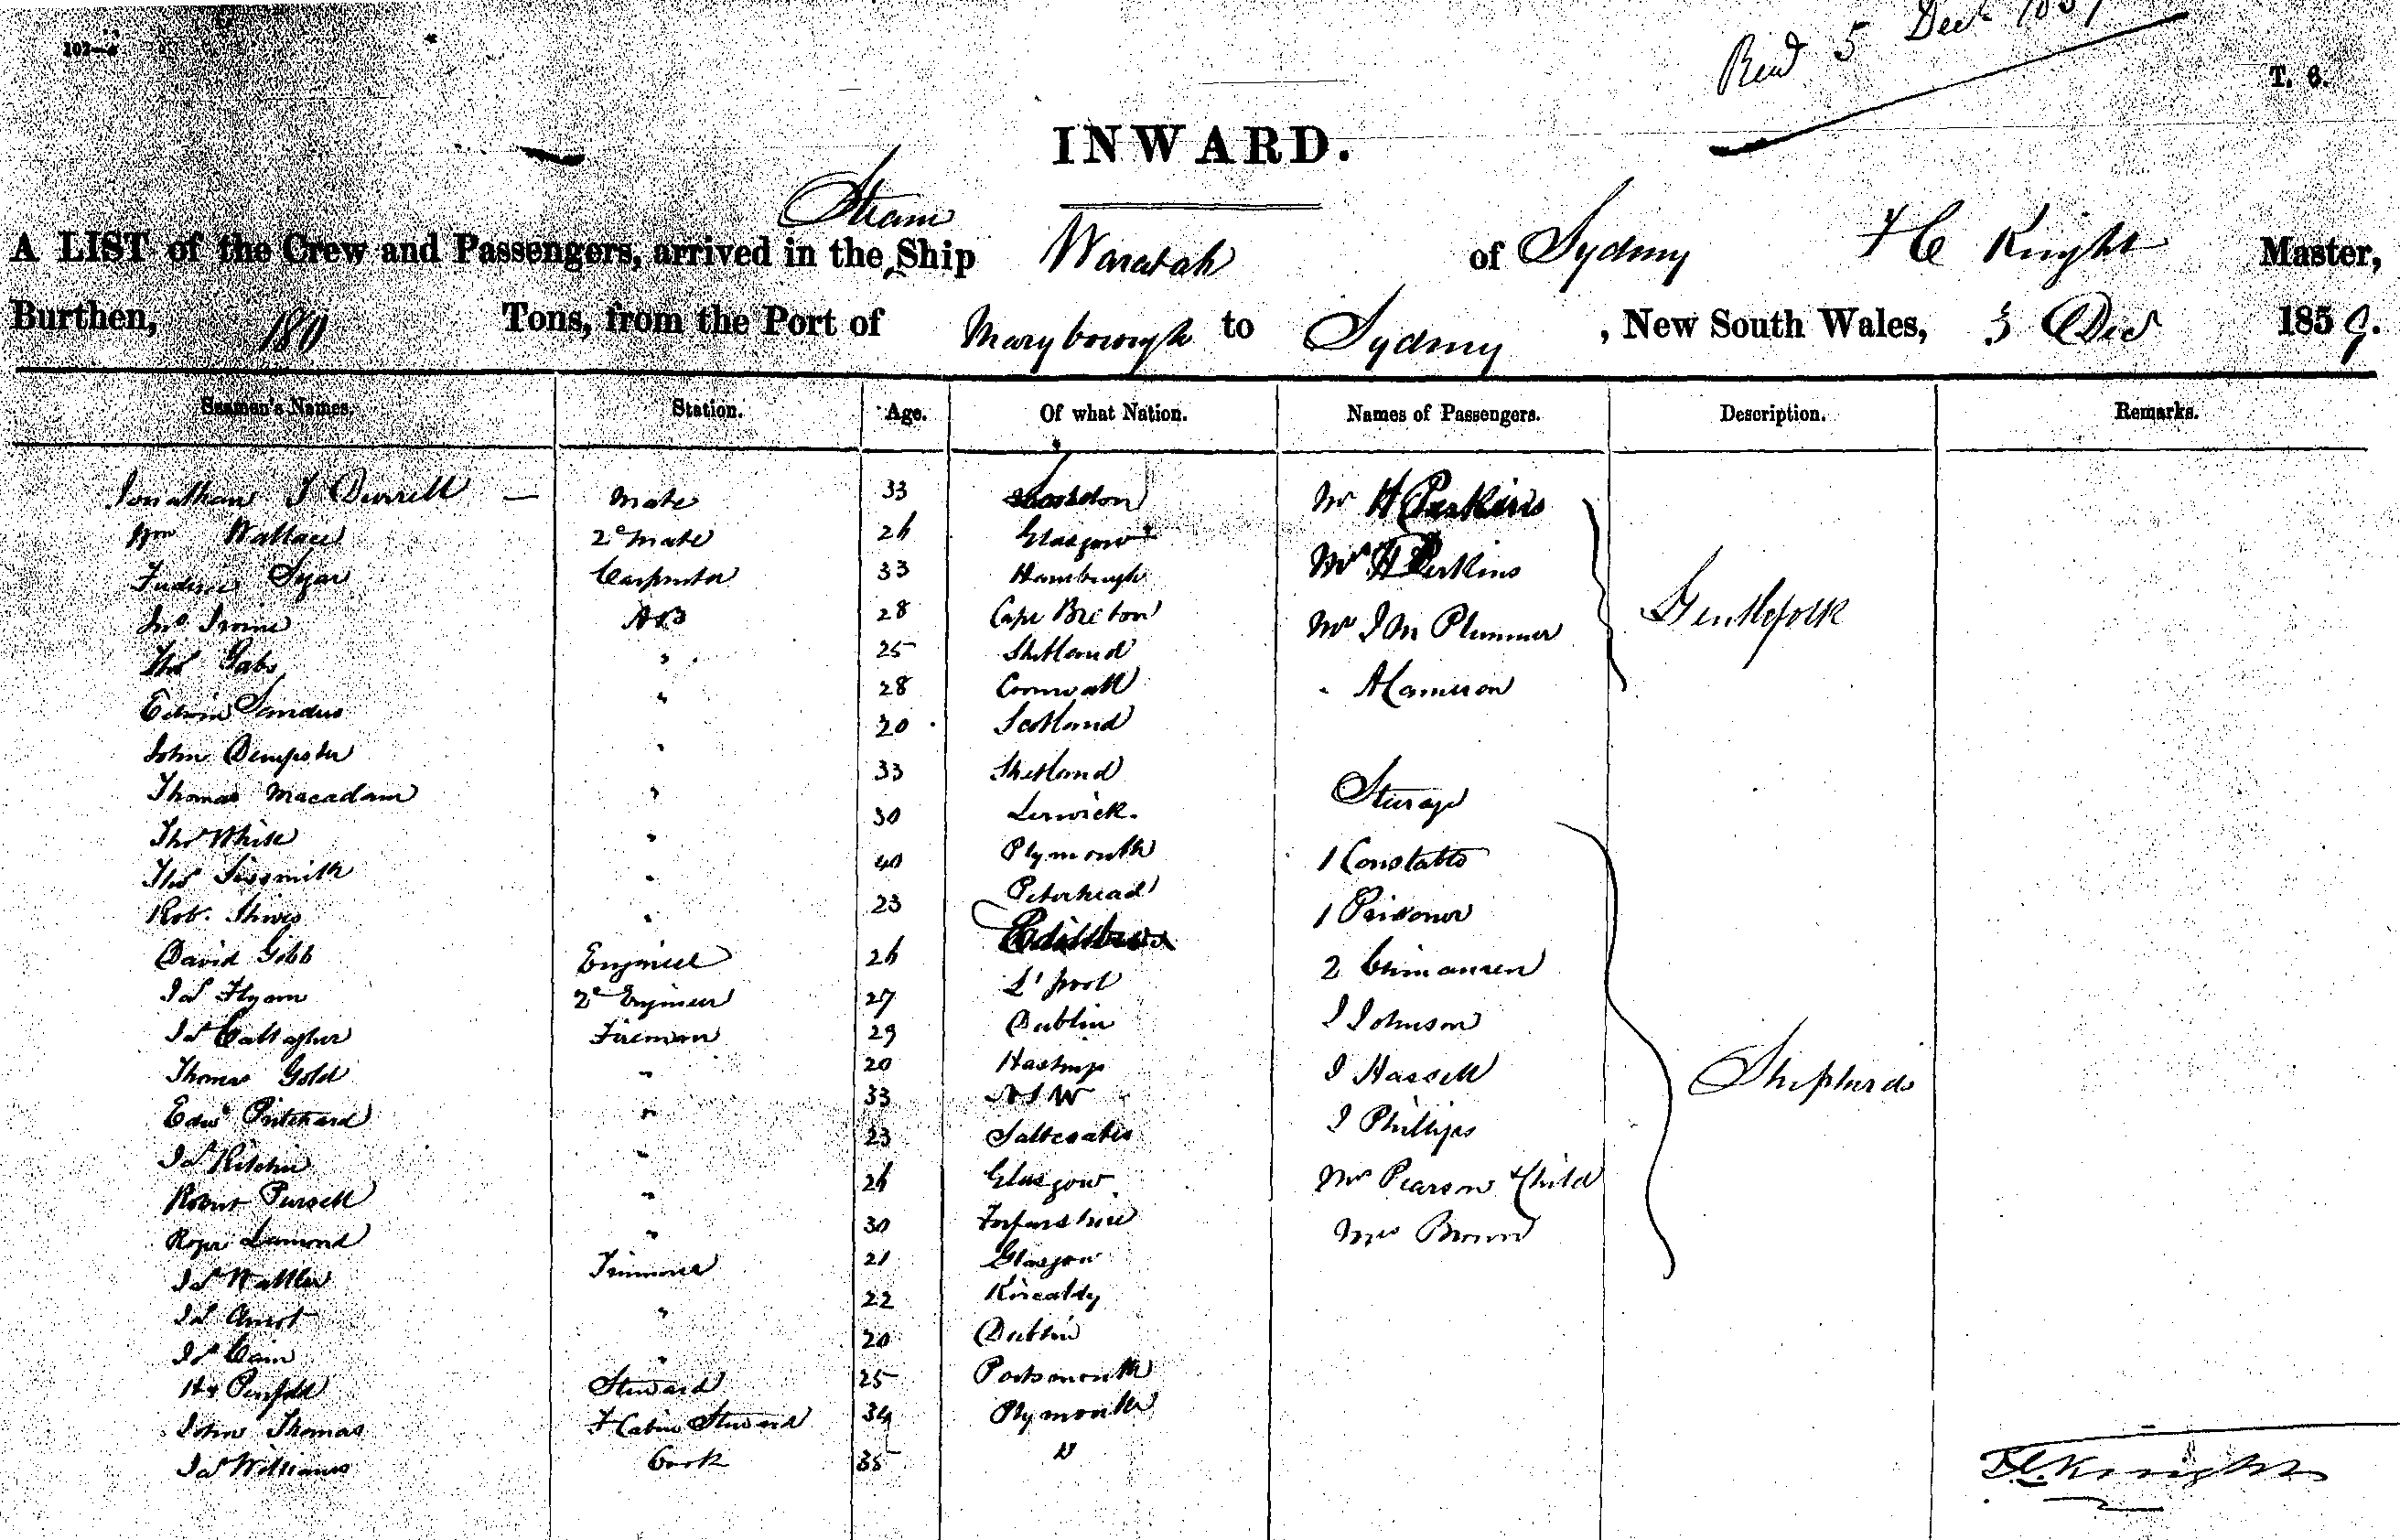 102—a
Recd 5 Decr 1859
T. 6.
INWARD.
Steam
A LIST of the Crew and Passengers, arrived in the ^ Ship Waratah of Sydney F C Knight Master,
Burthen, 180 Tons, from the Port of Maryborough to Sydney , New South Wales, 3 Dec 1859.
Seamen's Names. Station. Age. Of what Nation. Names of Passengers. Description. Remarks.
Jonathan J Durrell — Mate 33 London Mr H Perkins
Wm Wallace 2e Mate 26 Glasgow Mrs H Perkins
Carpenter 33 Hamburgh
Jno Irvine AB 28 Cape Briton Mr J M Plummer Gentlefolk
Thos " 25 Shetland
Edwin Sanders " 28 Cornwall " A Cameron
John Dempster " 20 Scotland
Thomas Macadam " 33 Shetland Steerage
Thos White " 30 Lerwick.
Thos Sissmith " 40 Plymouth 1 Constable
Robt " 23 Peterhead 1 Prisoner
David Gobb Engineer 26 2 Chinamen
Jas Flynn 2e Engineer 27 L'pool
Jas Gallagher Fireman 29 Dublin J Johnson
Thomas Gold " 20 Hastings J Hassell Shepherds
Edwd Pritchard " 33 NSW
Jas Ritchie " 23 Saltcoates J Phillips
Robert Pursell " 26 Glasgow Mrs Pearson & Child
Roger Lamond " 30 Forfarshire Mrs Brown
Jas Trimmer 21 Glasgow
Jas " 22 Kircaldy
Jas Cain " 20 Dublin
Hy Penfold Steward 25 Portsmouth
John Thomas F Cabin Steward 34 Plymouth
Jas Williams Cook 35 "
F C Knight